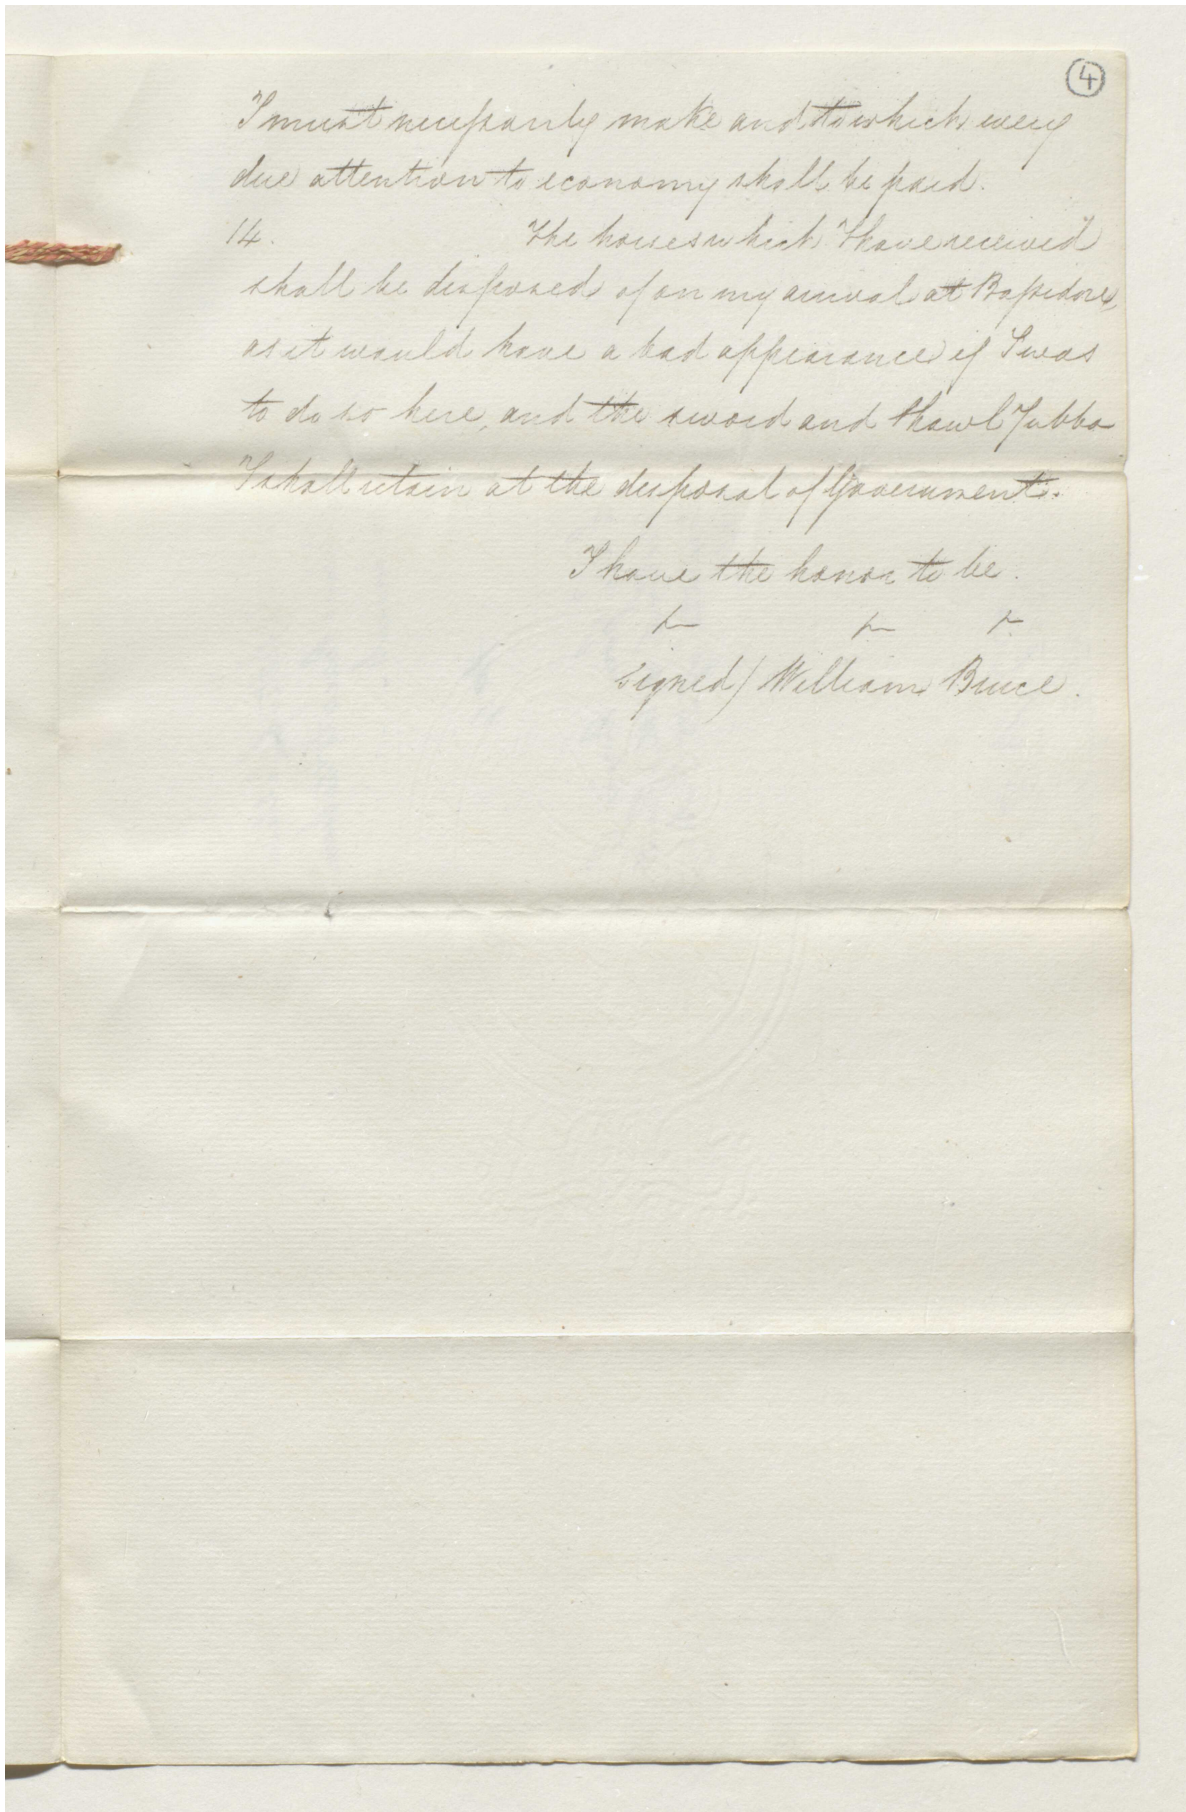 4
I must necessarily make and to which every
due attention to economy shall be paid.
14. The horses which I have received
shall be disposed of on my arrival at Bassidore,
as it would have a bad appearance if I was
to do so here, and the sword and Shawl Jubba
I shall retain at the disposal of Government.
I have the honor to be.
signed / William Bruce.